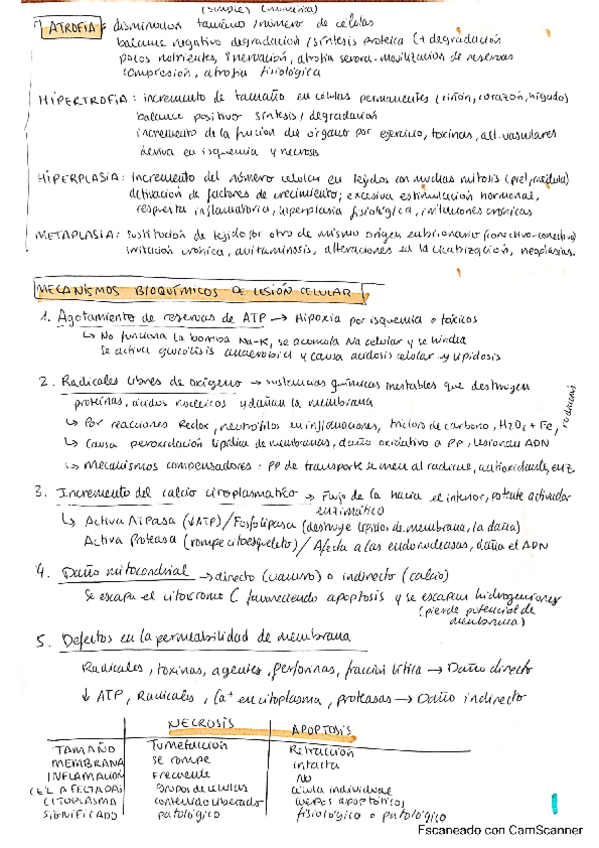 (simple) (numérica)
ATROFIA: disminución tamaño / número de células
balance negativo degradación / síntesis proteica (+ degradación
pocos nutrientes, inervación, atrofia serosa-movilización de reservas
compresión, atrofia fisiológica
HIPERTROFIA: incremento de tamaño en células permanentes (riñón, corazón, hígado)
balance positivo síntesis / degradación
incremento de la función del órgano por ejercicio, toxinas, alt. vasculares
deriva en isquemia y necrosis
HIPERPLASIA: incremento del número celular en tejidos con muchas mitosis (piel, médula)
activación de factores de crecimiento; excesiva estimulación hormonal,
respuesta inflamatoria, hiperplasia fisiológica, irritaciones crónicas
METAPLASIA: sustitución de tejido por otro de mismo origen embrionario (conectivo-conectivo)
irritación crónica, avitaminosis, alteraciones en la cicatrización, neoplasias.
MECANISMOS BIOQUÍMICOS DE LESIÓN CELULAR
1. Agotamiento de reservas de ATP → Hipoxia por isquemia o tóxicos
↳ No funciona la bomba Na-K, se acumula Na celular y se hincha
Se activa glucólisis anaerobia y causa acidosis celular y lipidosis
2. Radicales libres de oxígeno → sustancias químicas inestables que destruyen
proteínas, ácidos nucleicos y dañan la membrana
↳ Por reacciones Redox, neutrófilos en inflamaciones, tricloro de carbono, H2O2 + Fe, radiaciones
↳ Causa peroxidación lipídica de membranas, daño oxidativo a PP, lesion en ADN
↳ Mecanismos compensadores: PP de transporte se unen al radical, antioxidante, enz.
3. Incremento del calcio citoplasmático → Flujo de Ca hacia el interior, potente activador
enzimático
↳ Activa ATPasa (↓ATP) / Fosfolipasa (destruye lípidos de membrana, la daña)
Activa Proteasa (rompe citoesqueleto) / Afecta a las endonucleasas, daña el ADN
4. Daño mitocondrial → directo (cianuro) o indirecto (calcio)
Se escapa el citocromo C favoreciendo apoptosis y se escapan hidrogeniones
(pierde potencial de
membrana)
5. Defectos en la permeabilidad de membrana
Radicales, toxinas, agentes, perforinas, fracción lítica → Daño directo
↓ ATP, Radicales, Ca+ en citoplasma, proteasas → Daño indirecto
NECROSIS APOPTOSIS
TAMAÑO Tumefacción Retracción
MEMBRANA se rompe intacta
INFLAMACIÓN Frecuente no
CEL AFECTADAS Grupos de células célula individual
CITOPLASMA contenido liberado cuerpos apoptóticos
SIGNIFICADO patológico fisiológico o patológico
1
Escaneado con CamScanner